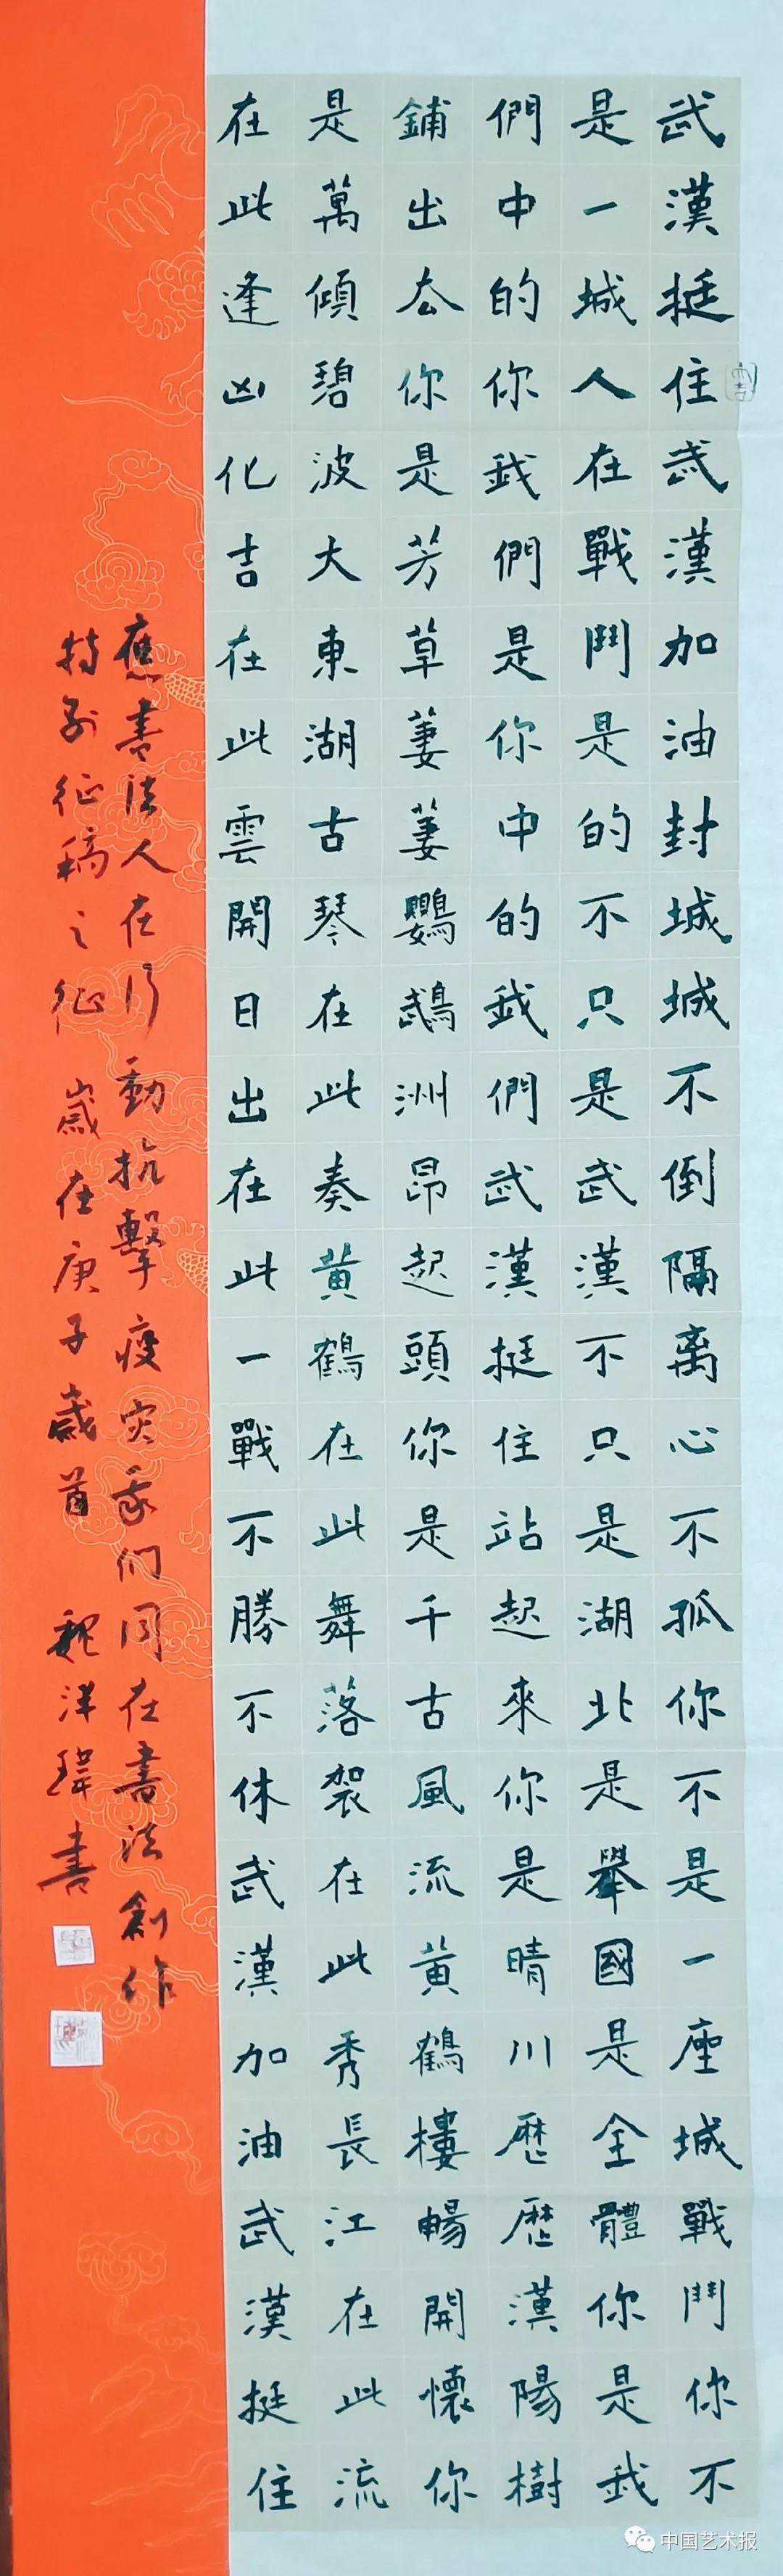 武漢挺住武漢加油封城城不倒隔离心不孤你不是一座城戰鬥你不
是一城人在戰鬥是的不只是武漢不只是湖北是舉國是全體你是我
們中的你我們是你中的我們武漢挺住站起來你是晴川歷歷漢陽樹
鋪出去你是芳草萋萋鸚鵡洲昂起頭你是千古風流黃鶴樓暢開懷你
是萬傾碧波大東湖古琴在此奏黃鶴在此舞落袈在此秀長江在此流
在此逢凶化吉在此雲開日出在此一戰不勝不休武漢加油武漢挺住
應書法人在行動抗擊疫灾我们同在書法創作
特别征稿之征 歲在庚子歲首 魏洋瑋書
中国艺术报